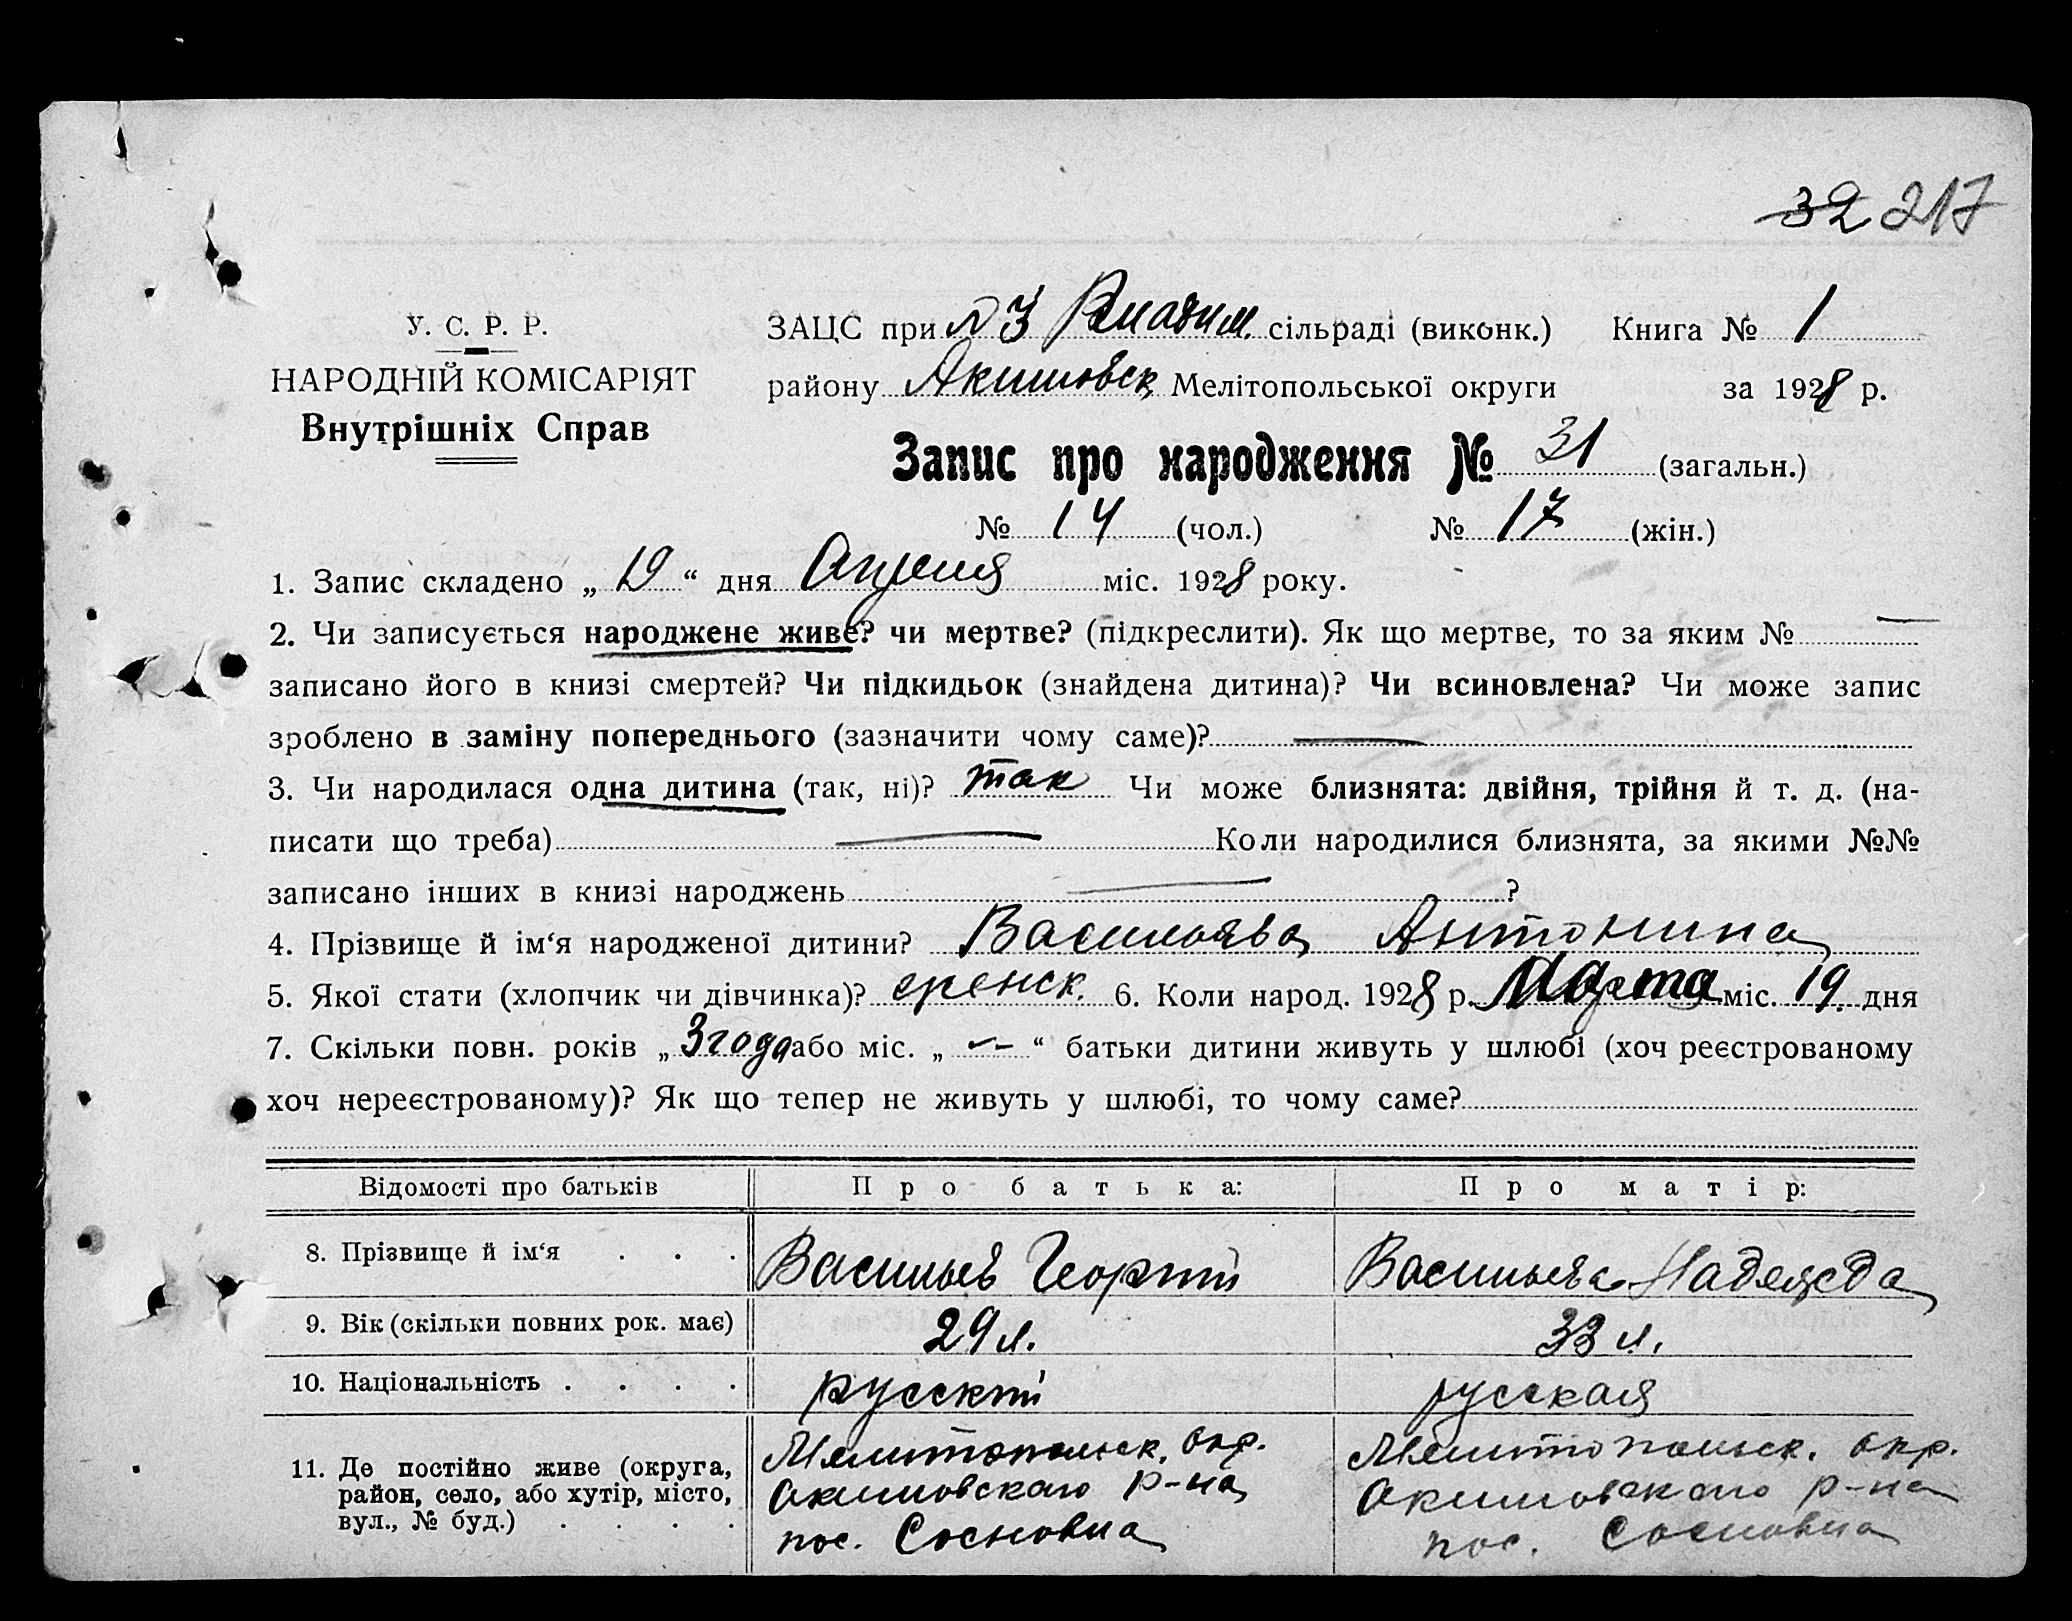 32 217
У. С. Р. Р.
НАРОДНІЙ КОМІСАРІЯТ
Внутрішніх Справ
ЗАЦС при № 3 Владим. сільраді (виконк.) Книга № 1
району Акимовск. Мелітопольської округи за 1928 р.
Запис про народження № 31 (загальн.)
№ 14 (чол.) № 17 (жін.)
1. Запис складено „ 19 “ дня Апреля міс. 1928 року.
2. Чи записується народжене живе? чи мертве? (підкреслити). Як що мертве, то за яким № —
записано його в книзі смертей? Чи підкидьок (знайдена дитина)? Чи всиновлена? Чи може запис
зроблено в заміну попереднього (зазначити чому саме)? —
3. Чи народилася одна дитина (так, ні)? так Чи може близнята: двійня, трійня й т. д. (на-
писати що треба) — Коли народилися близнята, за якими №№
записано інших в книзі народжень — ?
4. Прізвище й ім‘я народженої дитини? Васильева Антонина
5. Якої стати (хлопчик чи дівчинка)? женск. 6. Коли народ. 1928 р. Марта міс. 19. дня
7. Скільки повн. років „ 3 года або міс. „ — “ батьки дитини живуть у шлюбі (хоч реєстрованому
хоч нереєстрованому)? Як що тепер не живуть у шлюбі, то чому саме?
Відомості про батьків Про батька: Про матір:
8. Прізвище й ім‘я Васильев Георгий Васильева Надежда
9. Вік (скільки повних рок. має) 29 л. 33 л.
10. Національність русский русская
11. Де постійно живе (округа, район, село, або хутір, місто, вул., № буд.)
Мелитопольск. окр. Мелитопольск. окр.
Акимовского р-на Акимовского р-на
пос. Сосновка пос. Сосновка